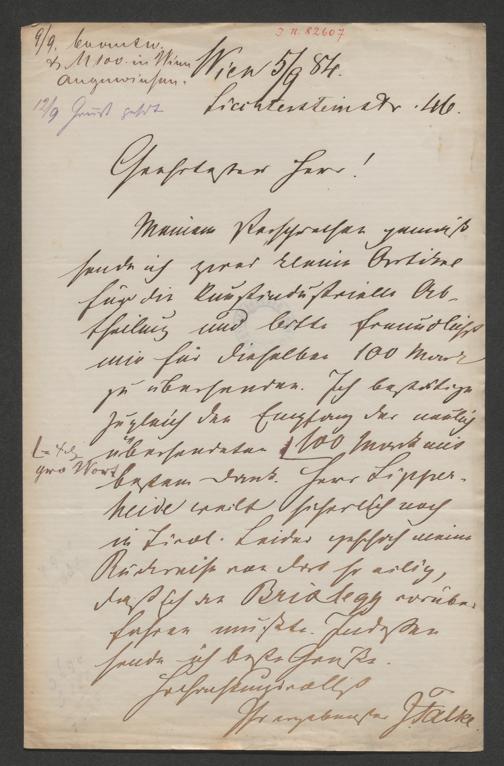 9/9. beantw.
& M 100. in Wien
angewiesen.
12/9
J. N. 82607
Wien 5/9 84.
Liechtensteinstr. 46.
Geehrtester Herr!
Meinem Versprechen gemäß
sende ich zwei kleine Artikel
für die kunstindustrielle Ab-
theilung und bitte freundlichst
mir für dieselben 100 Mark
zu übersenden. Ich bestätige
zugleich den Empfang der neulich
übersendeten 100 Mark mit
bestem Dank. Herr Lipper-
heide weilt sicherlich noch
in Tirol. Leider geschah meine
Rückreise von dort so eilig,
daß ich an Brixlegg vorüber
fahren mußte. Indessen
sende ich beste Grüße.
Hochachtungsvollst
Ihr ergebenster J. Falke.